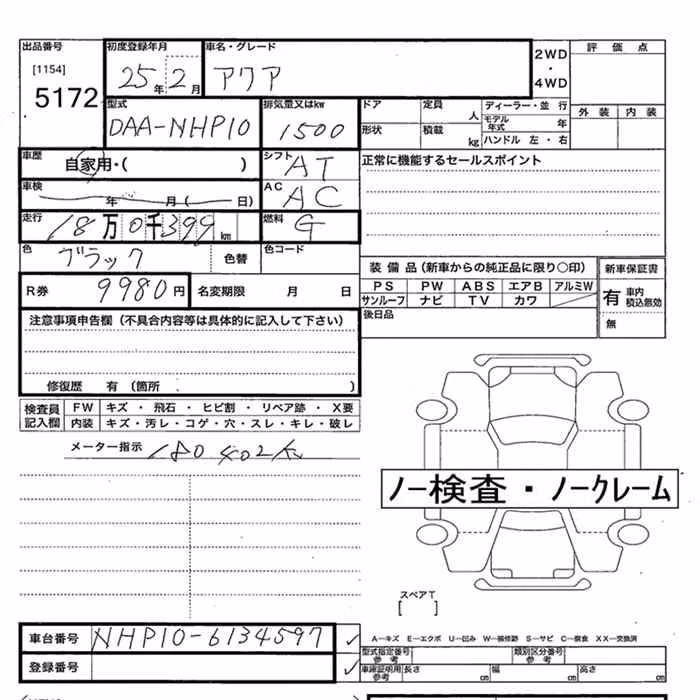 出品番号 初度登録年月 車名・グレード 2WD ・ 4WD 評価点
[1154] 5172 25年2月 アクア
外装 内装
型式 DAA-NHP10 排気量又はkw 1500 ドア 定員 人 ディーラー・並行
形状 積載 kg モデル年式 年
ハンドル 左・右
車歴 自家用・( ) シフト AT 正常に機能するセールスポイント
車検 年 月( 日) AC AC
走行 18万0千399km 燃料 G
色 ブラック 色替 色コード
装備品(新車からの純正品に限り○印) 新車保証書
R券 9980円 名変期限 月 日 PS PW ABS エアB アルミW 有 車内積込無効
サンルーフ ナビ TV カワ
注意事項申告欄(不具合内容等は具体的に記入して下さい) 後日品 無
修復歴 有 (箇所 )
検査員記入欄 FW キズ・飛石・ヒビ割・リペア跡・X要
内装 キズ・汚レ・コゲ・穴・スレ・キレ・破レ
メーター指示 180402K
ノー検査・ノークレーム
スペアT
[ ]
車台番号 NHP10-6134597 ✓
A−キズ E−エクボ U−凹み W−補修跡 S−サビ C−腐食 XX−交換済
型式指定番号 参考 類別区分番号 参考
登録番号 ✓ 車庫証明用 参考 長さ cm 幅 cm 高さ cm